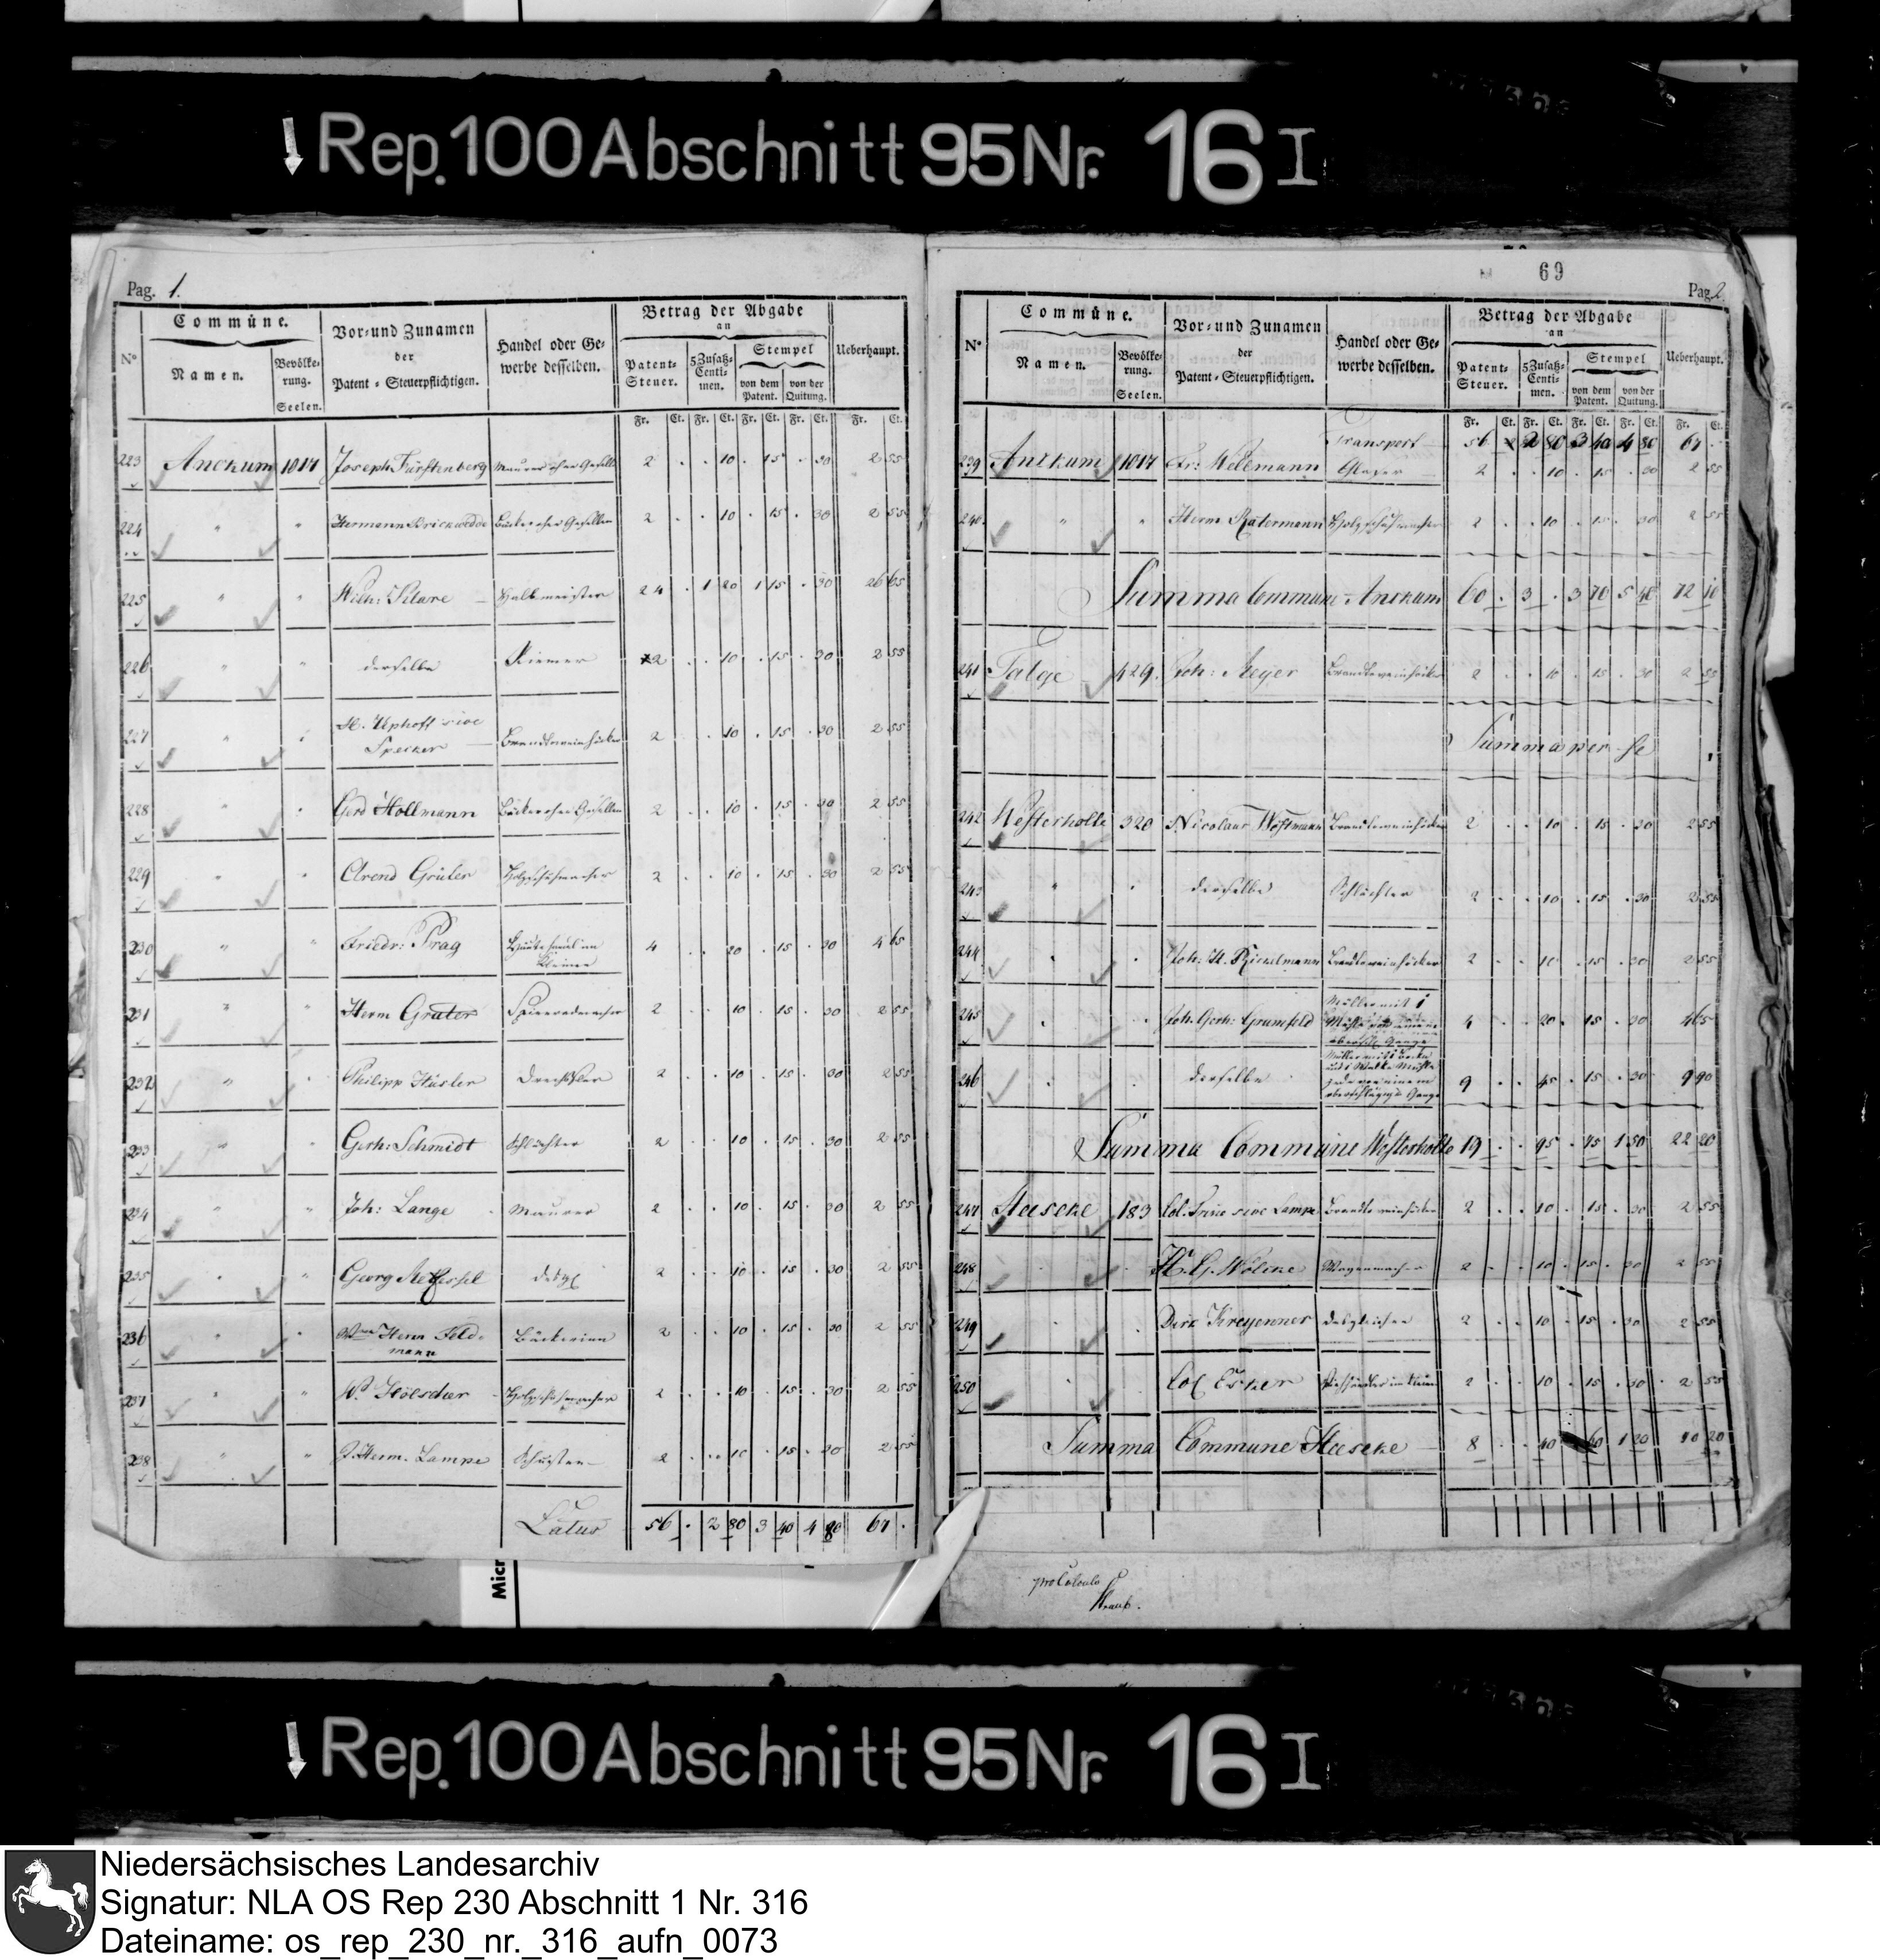 ↓ Rep. 100 Abschnitt 95 Nr. 16 I
Pag. 1.
N° Commüne. Namen. Bevölkerung. Seelen. Vor- und Zunamen der Patent-Steuerpflichtigen. Handel oder Gewerbe desselben. Betrag der Abgabe an Patent-Steuer. 5 Zusatz-Centimen. Stempel von dem Patent. von der Quitung. Ueberhaupt.
Fr. Ct. Fr. Ct. Fr. Ct. Fr. Ct. Fr. Ct.
223 Anckum 1017 Joseph Fürstenberg Maurer ohne Gesell 2 . . 10 . 15 . 30 2 55
224 " " Hermann Brickwedde Bäcker ohne Gesellen 2 . . 10 . 15 . 30 2 55
225 " " Wilh: Halbmeister 24 . 1 20 1 15 . 30 26 65
226 " " derselbe Riemer 2 . . 10 . 15 . 30 2 55
227 " " H. Uphoff sive
Specker Brandtweinhöcker 2 . . 10 . 15 . 30 2 55
228 " " Gerd Hollmann Bäcker ohne Gesellen 2 . . 10 . 15 . 30 2 55
229 " " Arend Grüter Holzschuhmacher 2 . . 10 . 15 . 30 2 55
230 " " Friedr: Prag im
Kleinen 4 . . 20 . 15 . 30 4 65
231 " " Herm Grüter 2 . . 10 . 15 . 30 2 55
232 " " Philipp Drechsler 2 . . 10 . 15 . 30 2 55
233 " " Gerh: Schmidt Schlächter 2 . . 10 . 15 . 30 2 55
234 " " Joh: Lange Maurer 2 . . 10 . 15 . 30 2 55
235 " " Georg desgl 2 . . 10 . 15 . 30 2 55
236 " " Wwe Herm Feld-
mann Bäckerinn 2 . . 10 . 15 . 30 2 55
237 " " W. Hölscher Holzschuhmacher 2 . . 10 . 15 . 30 2 55
238 " " J. Herm. Lampe Schuster 2 . . 10 . 15 . 30 2 55
Latus 56 . 2 80 3 40 4 80 67 .
69
Pag. 2.
N° Commüne. Namen. Bevölkerung. Seelen. Vor- und Zunamen der Patent-Steuerpflichtigen. Handel oder Gewerbe desselben. Betrag der Abgabe an Patent-Steuer. 5 Zusatz-Centimen. Stempel von dem Patent. von der Quitung. Ueberhaupt.
Fr. Ct. Fr. Ct. Fr. Ct. Fr. Ct. Fr. Ct.
Transport 56 . 2 80 3 40 4 80 67 .
239 Anckum 1017 Fr: Wellmann Glaser 2 . . 10 . 15 . 30 2 55
240 " " Herm Ratermann Holzschuhmacher 2 . . 10 . 15 . 30 2 55
Summa Commune Anckum 60 . 3 . 3 70 5 40 72 10
241 Talge 429. Joh: Meyer Brandtweinhöcker 2 . . 10 . 15 . 30 2 55
Summa per se
242 Westerholte 320 Nicolaus Wöstmann Brandtweinhöcker 2 . . 10 . 15 . 30 2 55
243 " " derselbe Schlächter 2 . . 10 . 15 . 30 2 55
244 " " Joh: H. Brandtweinhöcker 2 . . 10 . 15 . 30 2 55
245 " " Joh. Gerh. Grumfeld Müller mit 1
Mühle von einem
oberschl. Gange 4 . . 20 . 15 . 30 4 65
246 " " derselbe Müller mit 1
und 1 Walke Mühle
jede von einem
oberschlägigs Gange 9 . . 45 . 15 . 30 9 90
Summa Commüne Westerholte 19 . . 95 . 75 1 50 22 20
247 Heeseke 183 Col. sive Lampe Brandtweinhöcker 2 . . 10 . 15 . 30 2 55
248 " " H. G. Wölcke Wagenmacher 2 . . 10 . 15 . 30 2 55
249 " " Dirk Kreyenner desgleichen 2 . . 10 . 15 . 30 2 55
250 " " Col Esker im kleinen 2 . . 10 . 15 . 30 2 55
Summa Commune Heeseke 8 . . 40 . 60 1 20 10 20
pro Calculo
Micr
↓ Rep. 100 Abschnitt 95 Nr. 16 I
Niedersächsisches Landesarchiv
Signatur: NLA OS Rep 230 Abschnitt 1 Nr. 316
Dateiname: os_rep_230_nr._316_aufn_0073